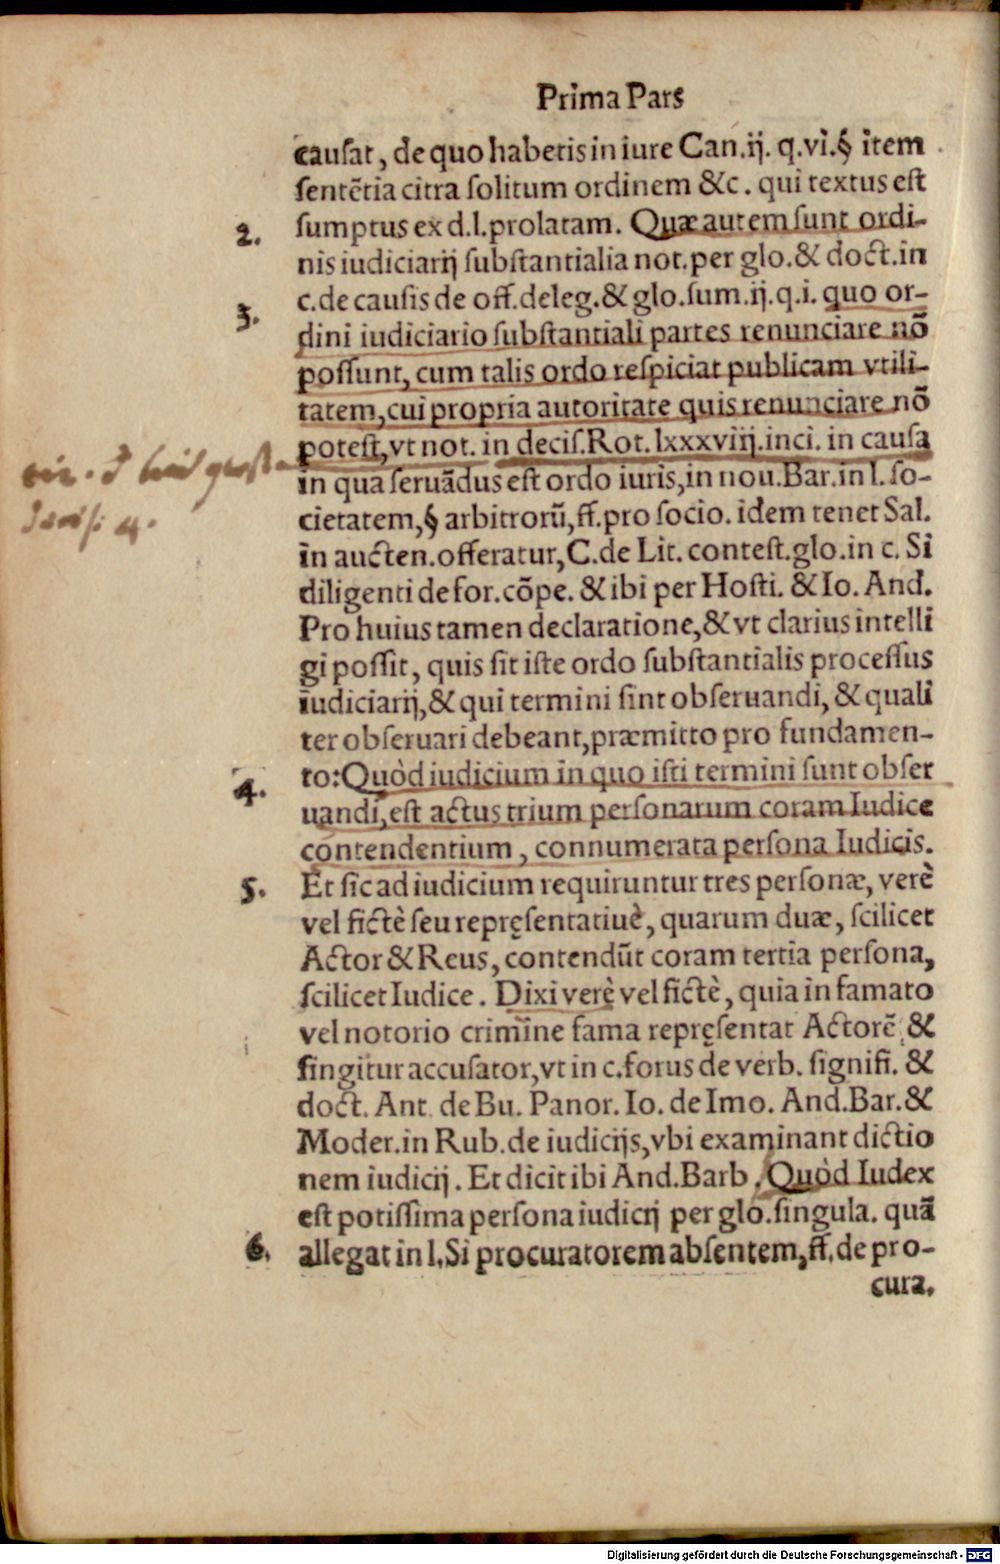 Prima Pars
causat, de quo habetis in iure Can.ij. q.vi.§ item
sentẽtia citra solitum ordinem &c. qui textus est
2. sumptus ex d.l.prolatam. Quæ autem sunt ordi-
nis iudiciarij substantialia not.per glo.& doct.in
3. c.de causis de off.deleg.& glo.sum.ij.q.i. quo or-
dini iudiciario substantiali partes renunciare nõ
possunt, cum talis ordo respiciat publicam vtili-
tatem,cui propria autoritate quis renunciare nõ
potest,vt not. in decis.Rot.lxxxviij.inci. in causa
in qua seruãdus est ordo iuris,in nou.Bar.in l.so-
cietatem,§ arbitrorũ,ff.pro socio. idem tenet Sal.
in aucten.offeratur,C.de Lit. contest.glo.in c. Si
diligenti de for.cõpe. & ibi per Hosti. & Io. And.
Pro huius tamen declaratione,& vt clarius intelli
gi possit, quis sit iste ordo substantialis processus
iudiciarij,& qui termini sint obseruandi, & quali
ter obseruari debeant,præmitto pro fundamen-
4. to:Quòd iudicium in quo isti termini sunt obser
uandi,est actus trium personarum coram Iudice
contendentium, connumerata persona Iudicis.
5. Et sic ad iudicium requiruntur tres personæ, verè
vel fictè seu repręsentatiuè, quarum duæ, scilicet
Actor & Reus, contendũt coram tertia persona,
scilicet Iudice. Dixi verè vel fictè, quia in famato
vel notorio crimine fama repręsentat Actorẽ, &
fingitur accusator,vt in c.forus de verb. signifi. &
doct. Ant. de Bu. Panor. Io. de Imo. And.Bar.&
Moder.in Rub.de iudicijs,vbi examinant dictio
nem iudicij. Et dicit ibi And.Barb. Quòd Iudex
est potissima persona iudicij per glo.singula. quã
6. allegat in l.Si procuratorem absentem,ff.de pro-
cura.
Digitalisierung gefördert durch die Deutsche Forschungsgemeinschaft - DFG